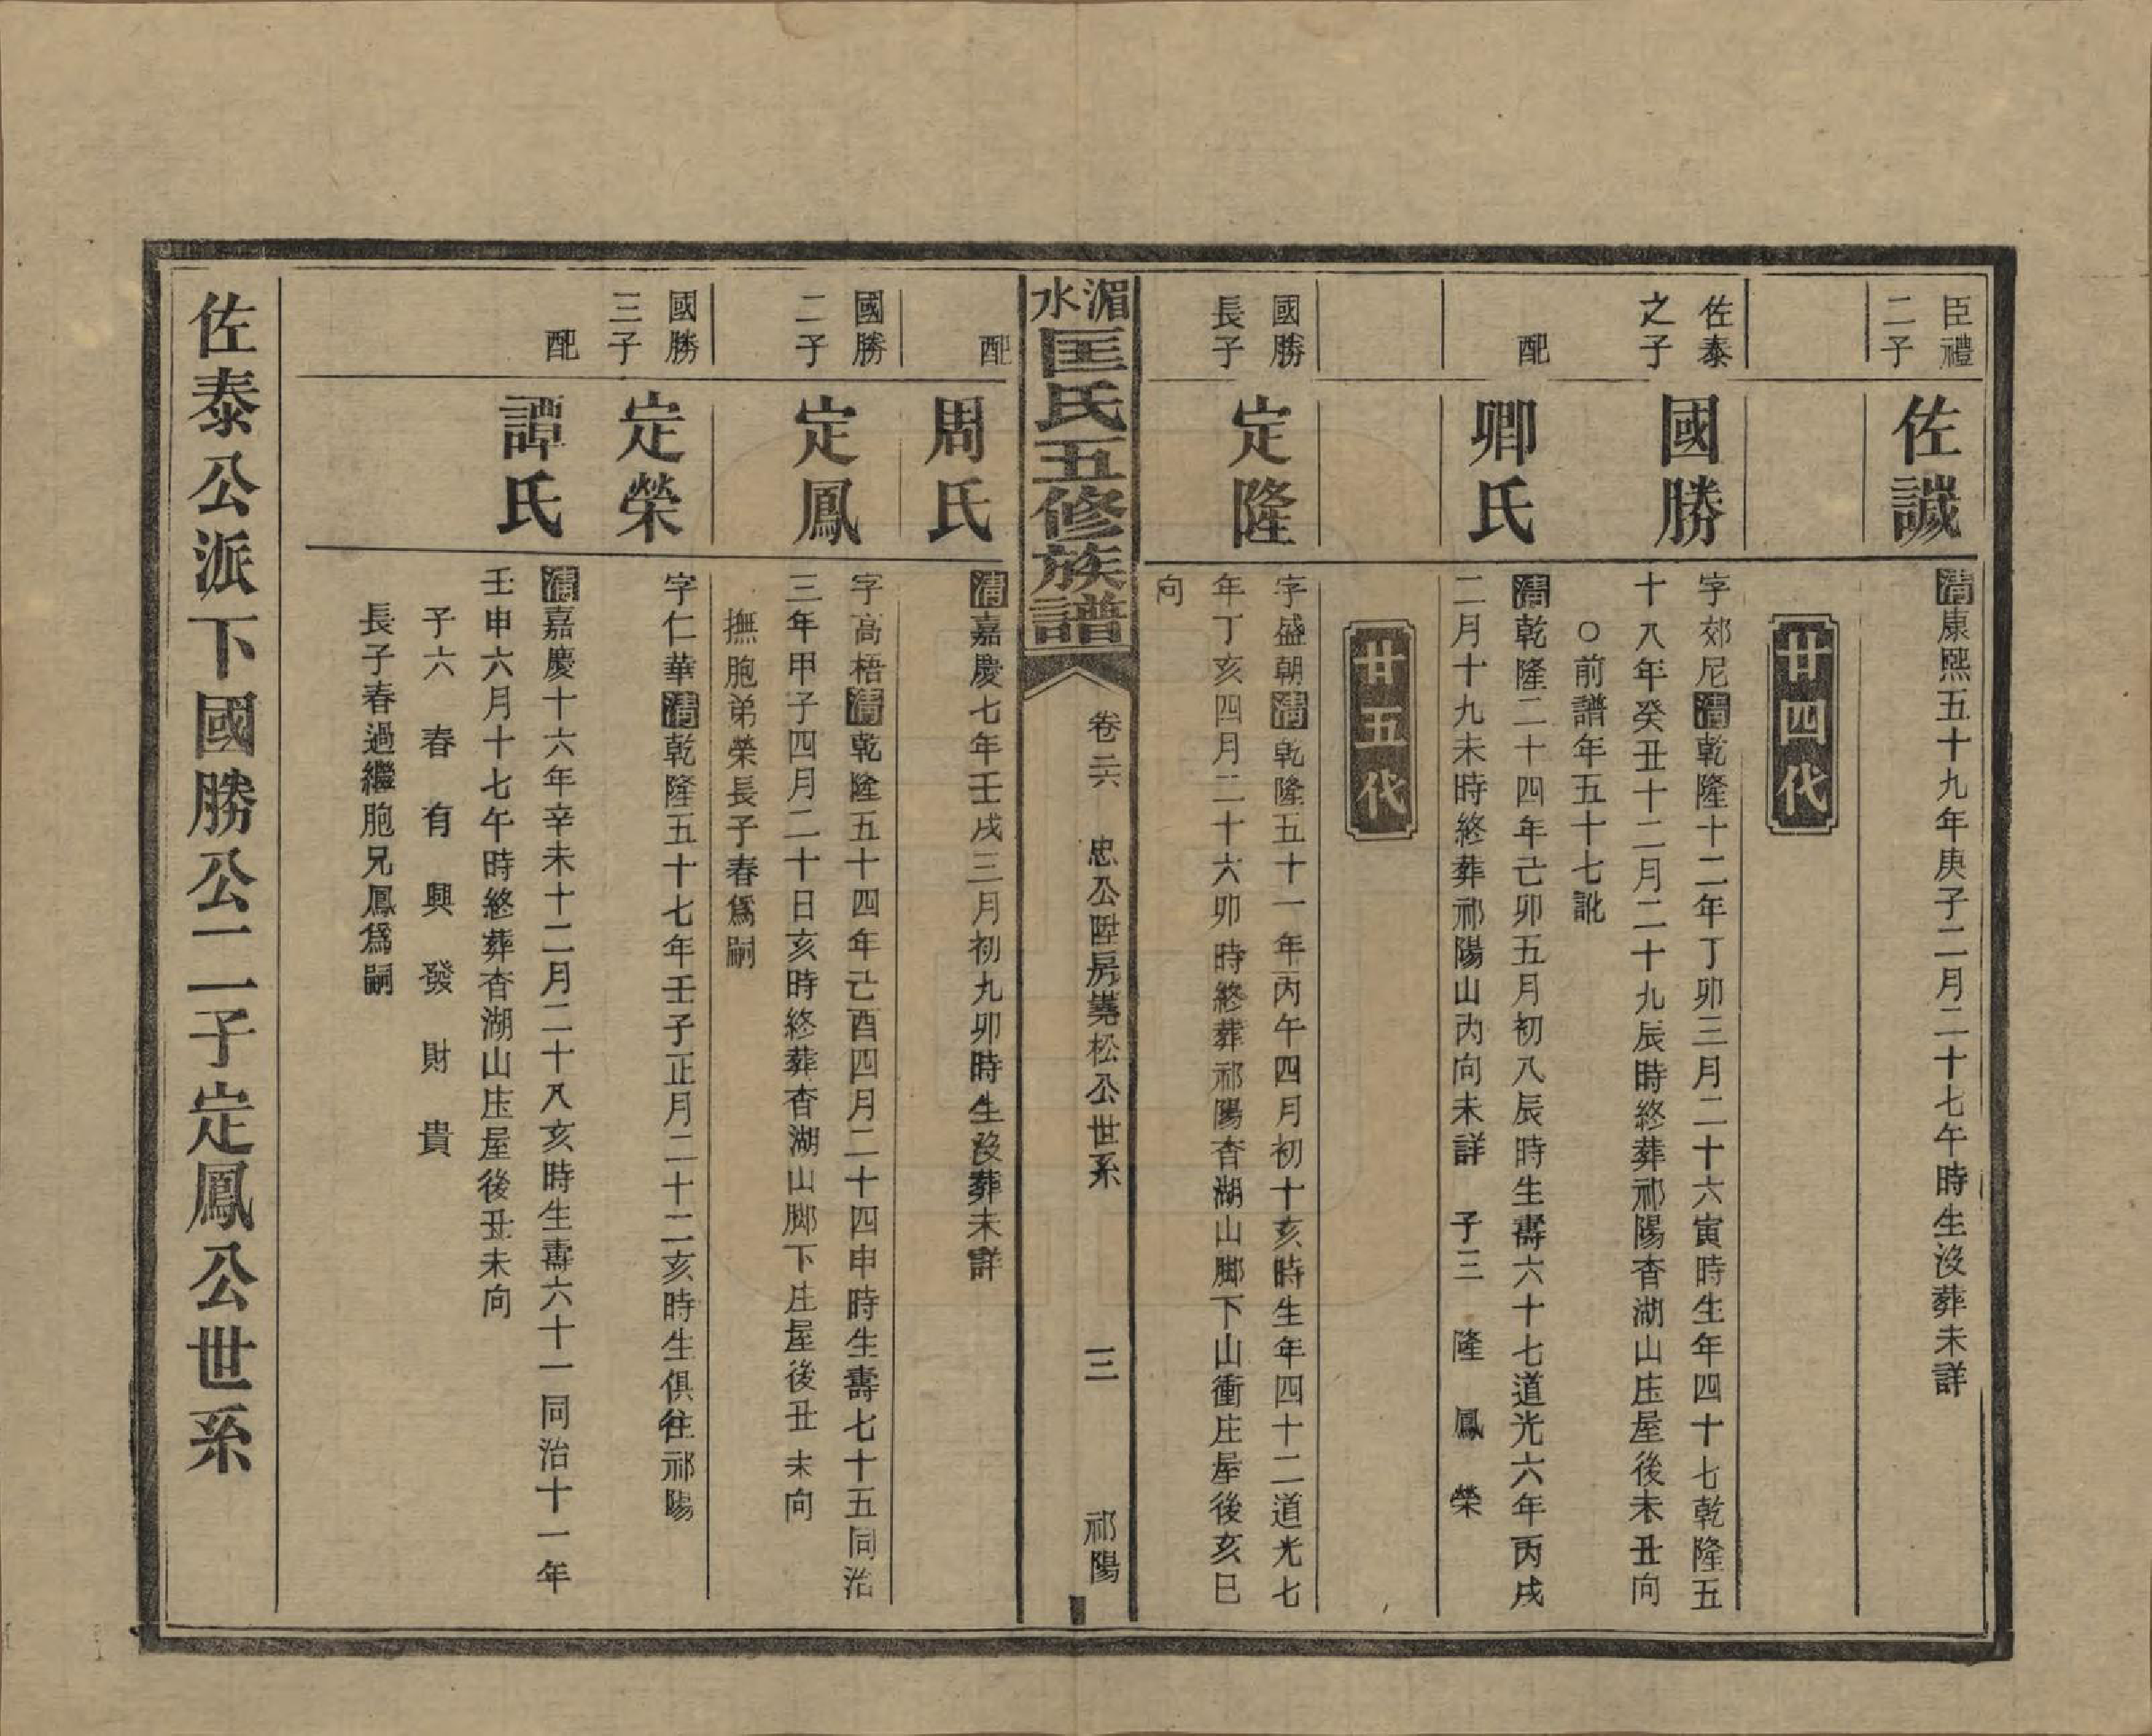 臣禮
二子
佐誠
清康熙五十九年庚子二月二十七午時生沒葬未詳
廿四代
佐泰
之子
國勝
字郊尼清乾隆十二年丁卯三月二十六寅時生年四十七乾隆五
十八年癸丑十二月二十九辰時終葬祁陽杳湖山庄屋後未丑向
○前譜年五十七訛
配
卿氏
清乾隆二十四年己卯五月初八辰時生壽六十七道光六年丙戌
二月十九未時終葬祁陽山內向未詳 子三 隆 鳳 榮
廿五代
國勝
長子
定隆
字盛朝清乾隆五十一年丙午四月初十亥時生年四十二道光七
年丁亥四月二十六卯時終葬祁陽杳湖山脚下山衝庄屋後亥巳
向
湄水匡氏五修族譜
卷三六 忠公陞房嵩松公世系 三 祁陽
配
周氏
清嘉慶七年壬戌三月初九卯時生沒葬未詳
國勝
二子
定鳳
字高梧清乾隆五十四年己酉四月二十四申時生壽七十五同治
三年甲子四月二十日亥時終葬杳湖山脚下庄屋後丑未向
撫胞弟榮長子春爲嗣
國勝
三子
定榮
字仁華清乾隆五十七年壬子正月二十二亥時生俱住祁陽
配
譚氏
清嘉慶十六年辛未十二月二十八亥時生壽六十一同治十一年
壬申六月十七午時終葬杳湖山庄屋後丑未向
子六 春 有 興 發 財 貴
長子春過繼胞兄鳳爲嗣
佐泰公派下國勝公二子定鳳公世系